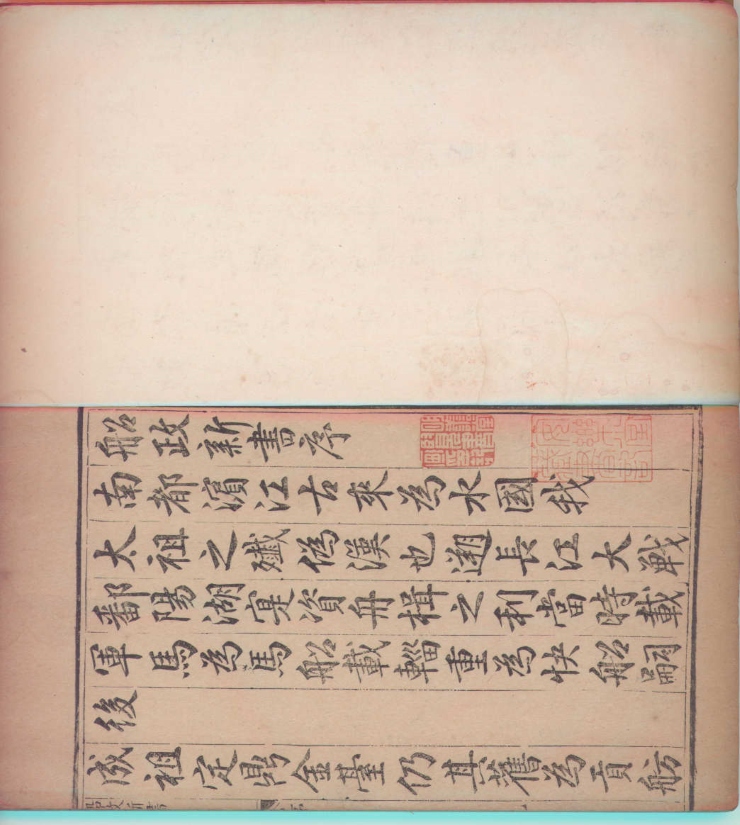 船政新書序
南都濱江古來為水國我
太祖之殲偽漢也遡長江大戰
鄱陽湖寔資舟楫之利當時載
軍馬為馬船載輜重為快船嗣
後
成祖定鼎金臺仍其舊為貢舫